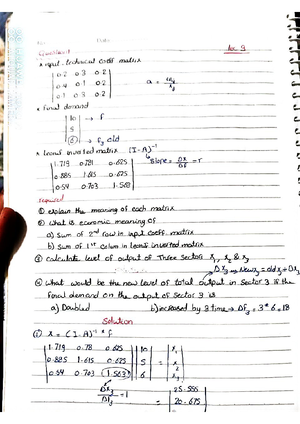 * input-technical coeff matrix
0.2 0.3 0.2
0.4 0.1 0.2
0.1 0.3 0.2
* final demand
10 → f
5
6 → f3 old
* Leonif inverted matrix (I-A)⁻¹
1.719 0.781 0.625
Slope = Δx/Δf = r
0.885 1.615 0.675
0.54 0.703 1.563
required
① explain the meaning of each matrix
② what is economic meaning of
a) Sum of 2nd row in input coeff. matrix
b) Sum of 1st colum in leonif inverted matrix
③ calculate level of output of Three Sectors x1, x2 & x3
④ what would be the new level of total output in Sector 3 is the
final demand on the output of Sector 3 is
a) Doubled b) increased by 3 time → Δf3 = 3*6=18
Solution
① x = (I-A)⁻¹ * f
1.719 0.78 0.625 10 x1
0.885 1.615 0.675 5 = x2
0.54 0.703 1.563 6 x3
25.555
20.675